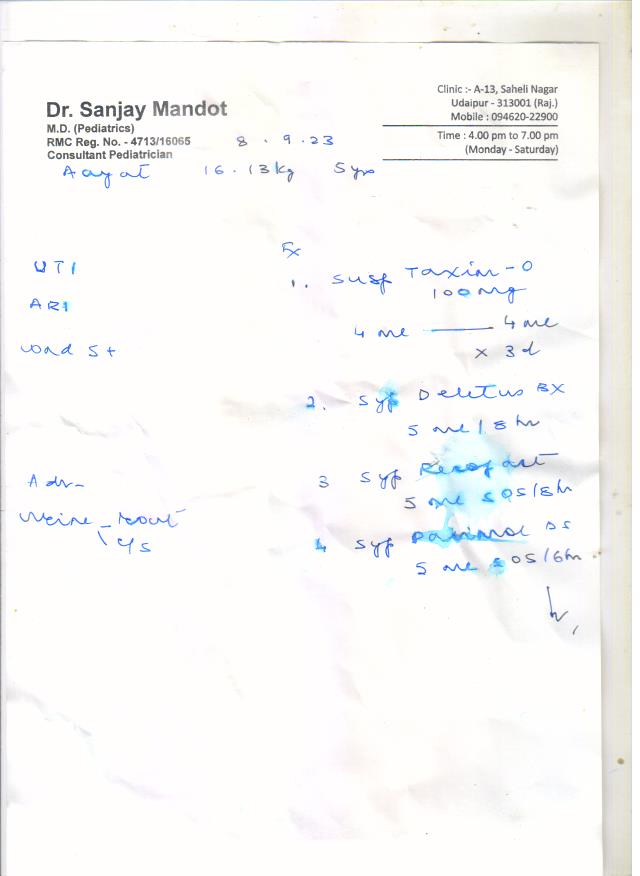 Dr. Sanjay Mandot
M.D. (Pediatrics)
RMC Reg. No. - 4713/16065
Consultant Pediatrician
Clinic :- A-13, Saheli Nagar
Udaipur - 313001 (Raj.)
Mobile : 094620-22900
Time : 4.00 pm to 7.00 pm
(Monday - Saturday)
8 . 9 . 23
Aayat 16.13kg 5yrs
Rx
UTI
1. Susp Taxim-O
100mg
ARI
4 ml 4 ml
x 3d
S+
2. Syp Deletus BX
5 ml / 8 hr
Adv-
3 Syp
5 ml SOS/8hr
Urine
C/S
4 Syp DS
5 ml SOS/6hr